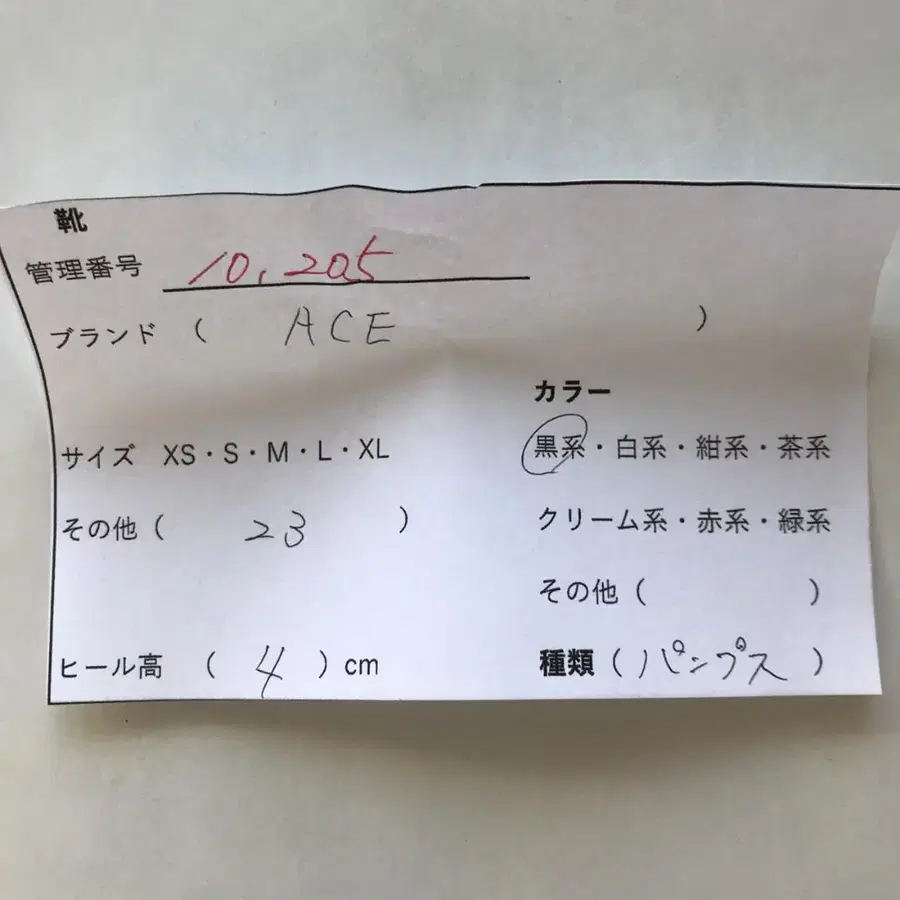 靴
管理番号 10,205
ブランド ( ACE )
カラー
サイズ XS・S・M・L・XL
黒系・白系・紺系・茶系
その他 ( 23 )
クリーム系・赤系・緑系
その他 ( )
ヒール高 ( 4 ) cm
種類 ( パンプス )